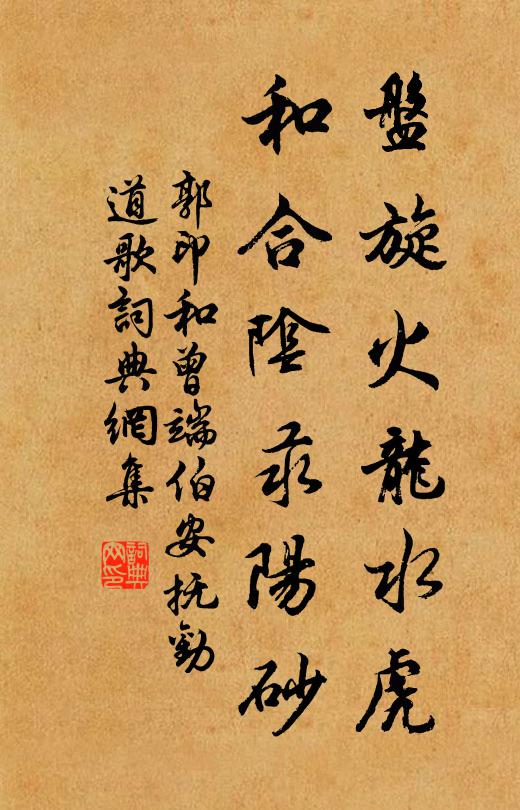 盤旋火龍水虎
和合陰汞陽砂
郭印和曾端伯安撫勸
道歌詞典網集
詞典網印